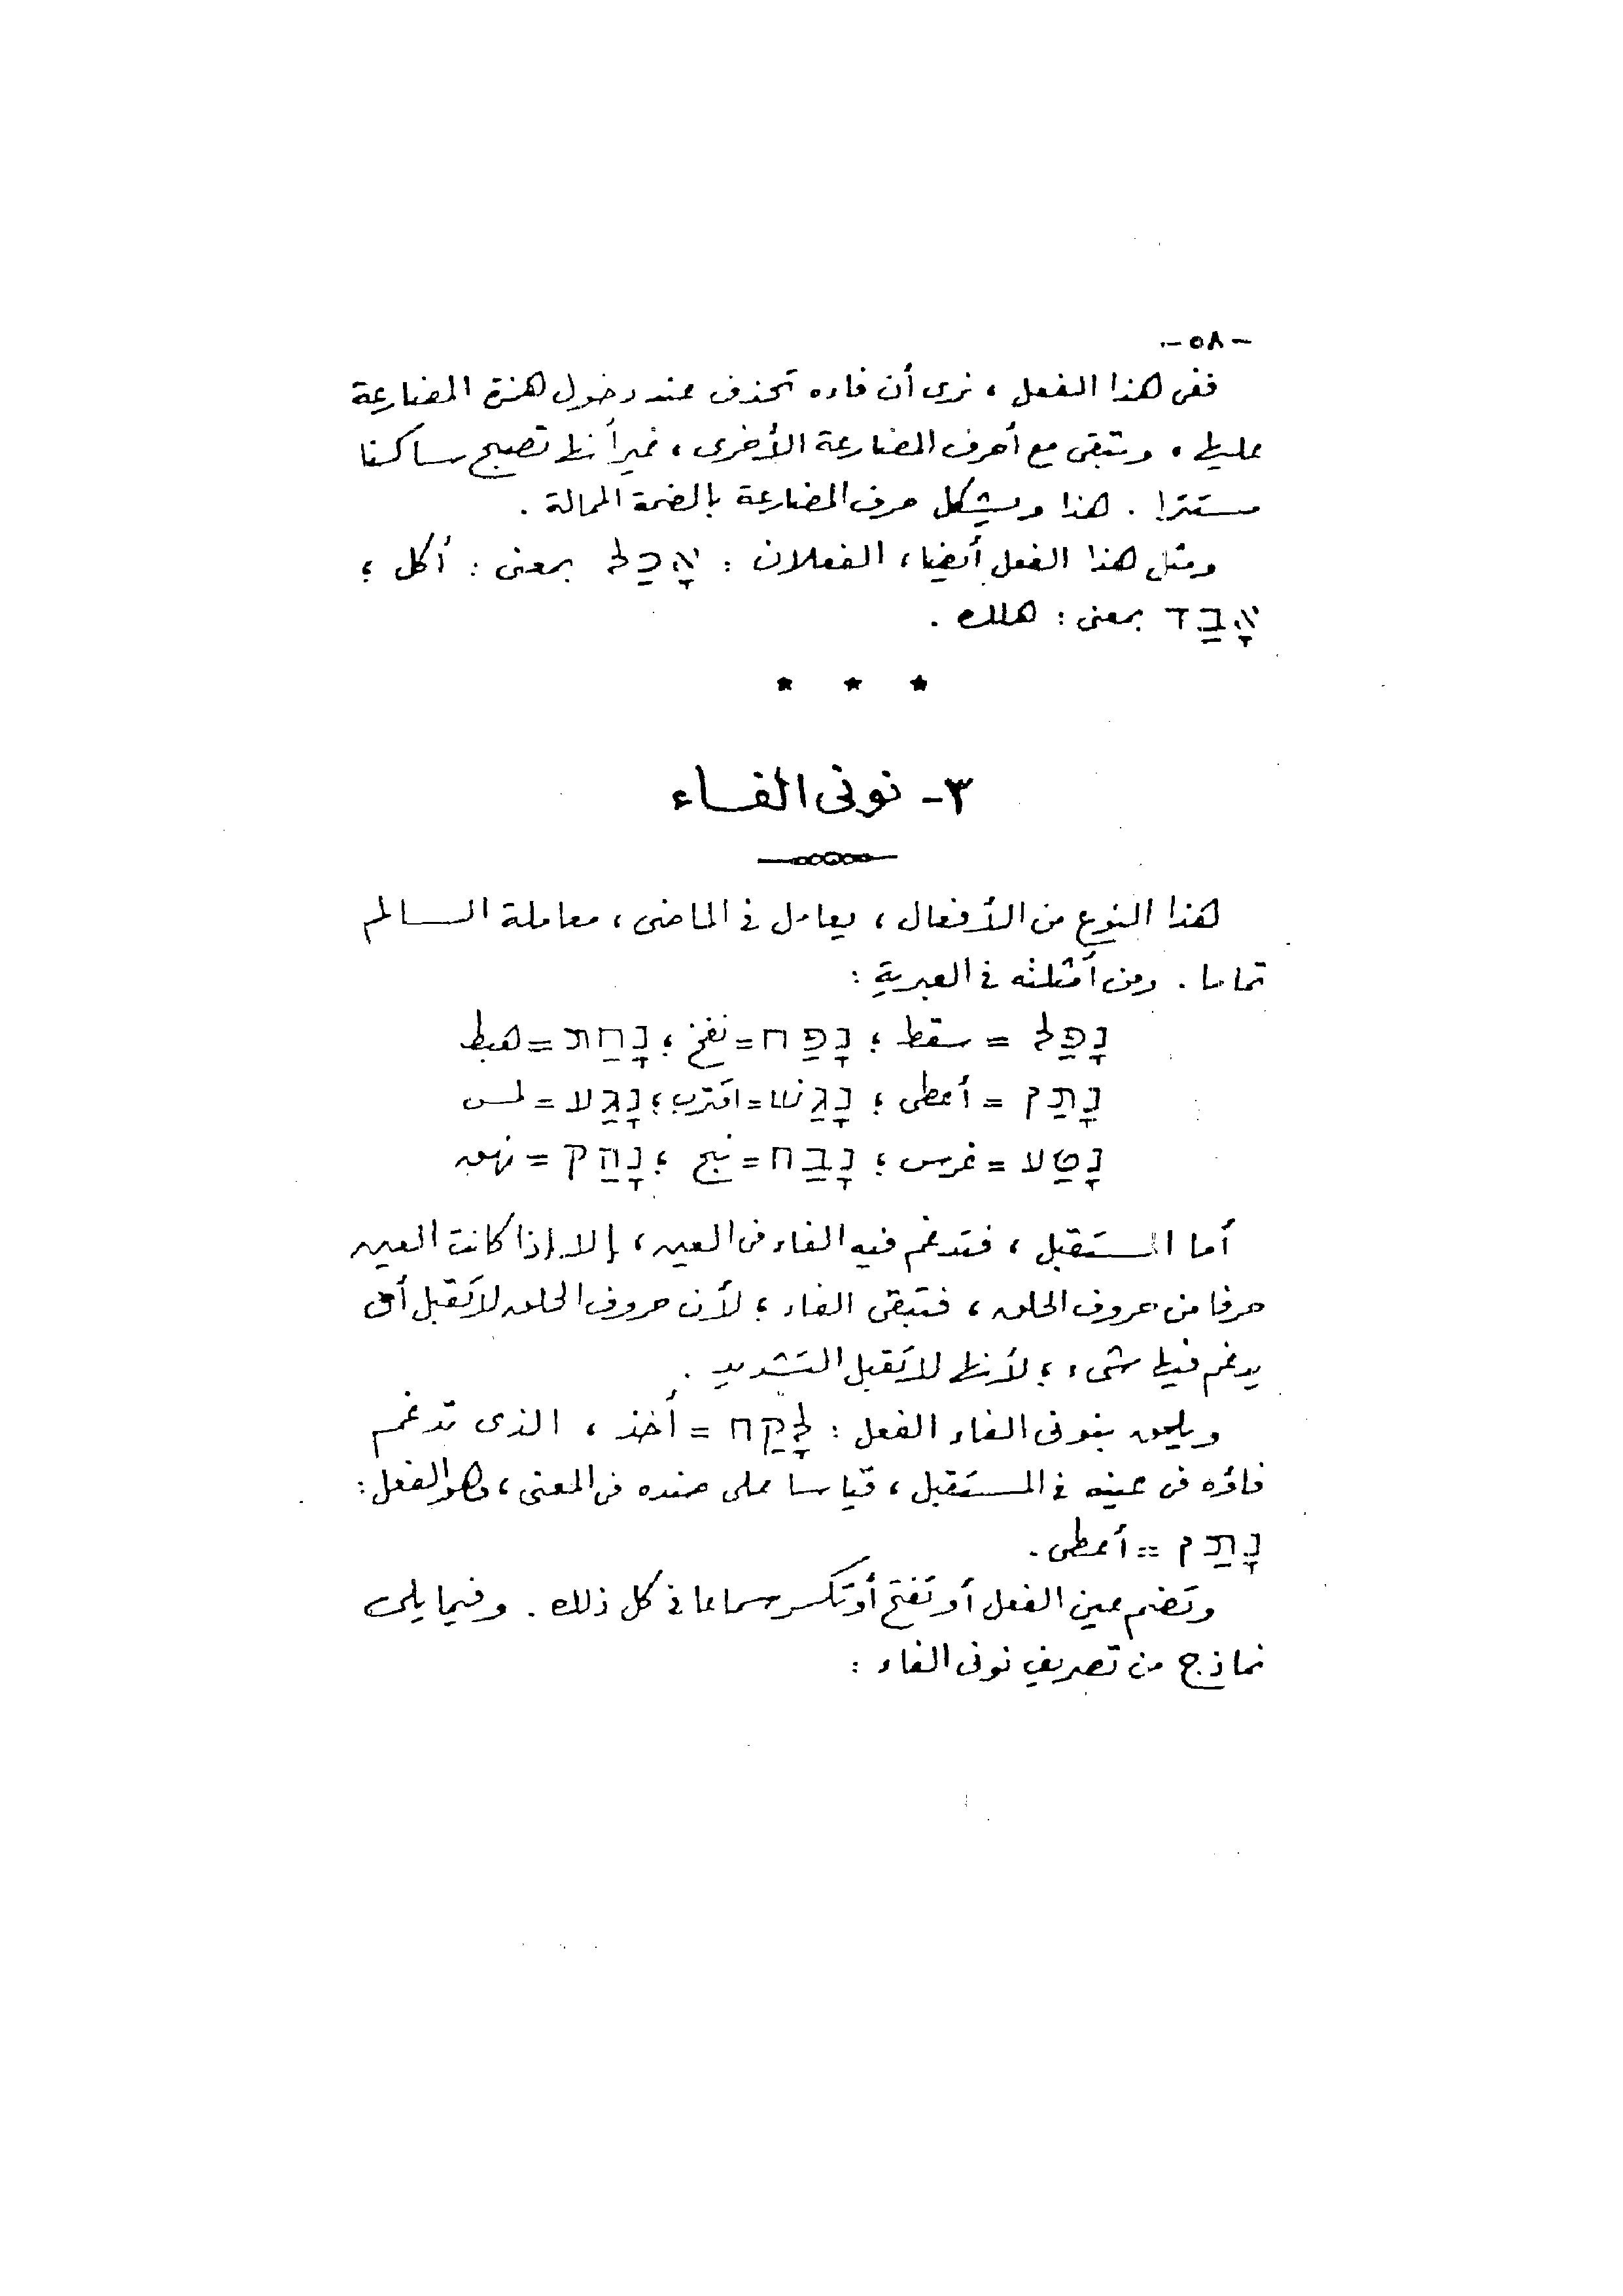 -٥٨-
ففى هذا الفعل، نرى أن فاءه تحذف عند دخول همزة المضارعة
عليها، وتبقى مع أحرف المضارعة الأخرى، غير أنها تصبح ساكنا
مستترا. هذا ويشكل حرف المضارعة بالضمة الممالة.
ومثل هذا الفعل أيضا، الفعلان: אָכַל بمعنى: أكل؛
אָבַד بمعنى: هلك.
* * *
٣- نونى الفاء
هذا النوع من الأفعال، يعامل فى الماضى، معاملة السالم
تماما. ومن أمثلته فى العبرية:
נָפַל = سقط؛ נָפַח = نفخ؛ נָחַת = هبط
נָתַן = أعطى؛ נָגַשׁ = اقترب؛ נָגַע = لمس
נָטַע = غرس؛ נָבַח = نبح؛ נָהַק = نهق
أما المستقبل، فتدغم فيه الفاء فى العين، إلا إذا كانت العين
حرفا من حروف الحلق، فتبقى الفاء؛ لأن حروف الحلق لا تقبل أن
يدغم فيها شىء؛ لأنها لا تقبل التشديد.
ويلحق بنونى الفاء الفعل: לָקַח = أخذ، الذى تدغم
فاؤه فى عينه فى المستقبل، قياسا على ضده فى المعنى، وهو الفعل:
נָתַן = أعطى.
وتضم عين الفعل أو تفتح أو تكسر سماعا فى كل ذلك. وفيما يلى
نماذج من تصريف نونى الفاء: